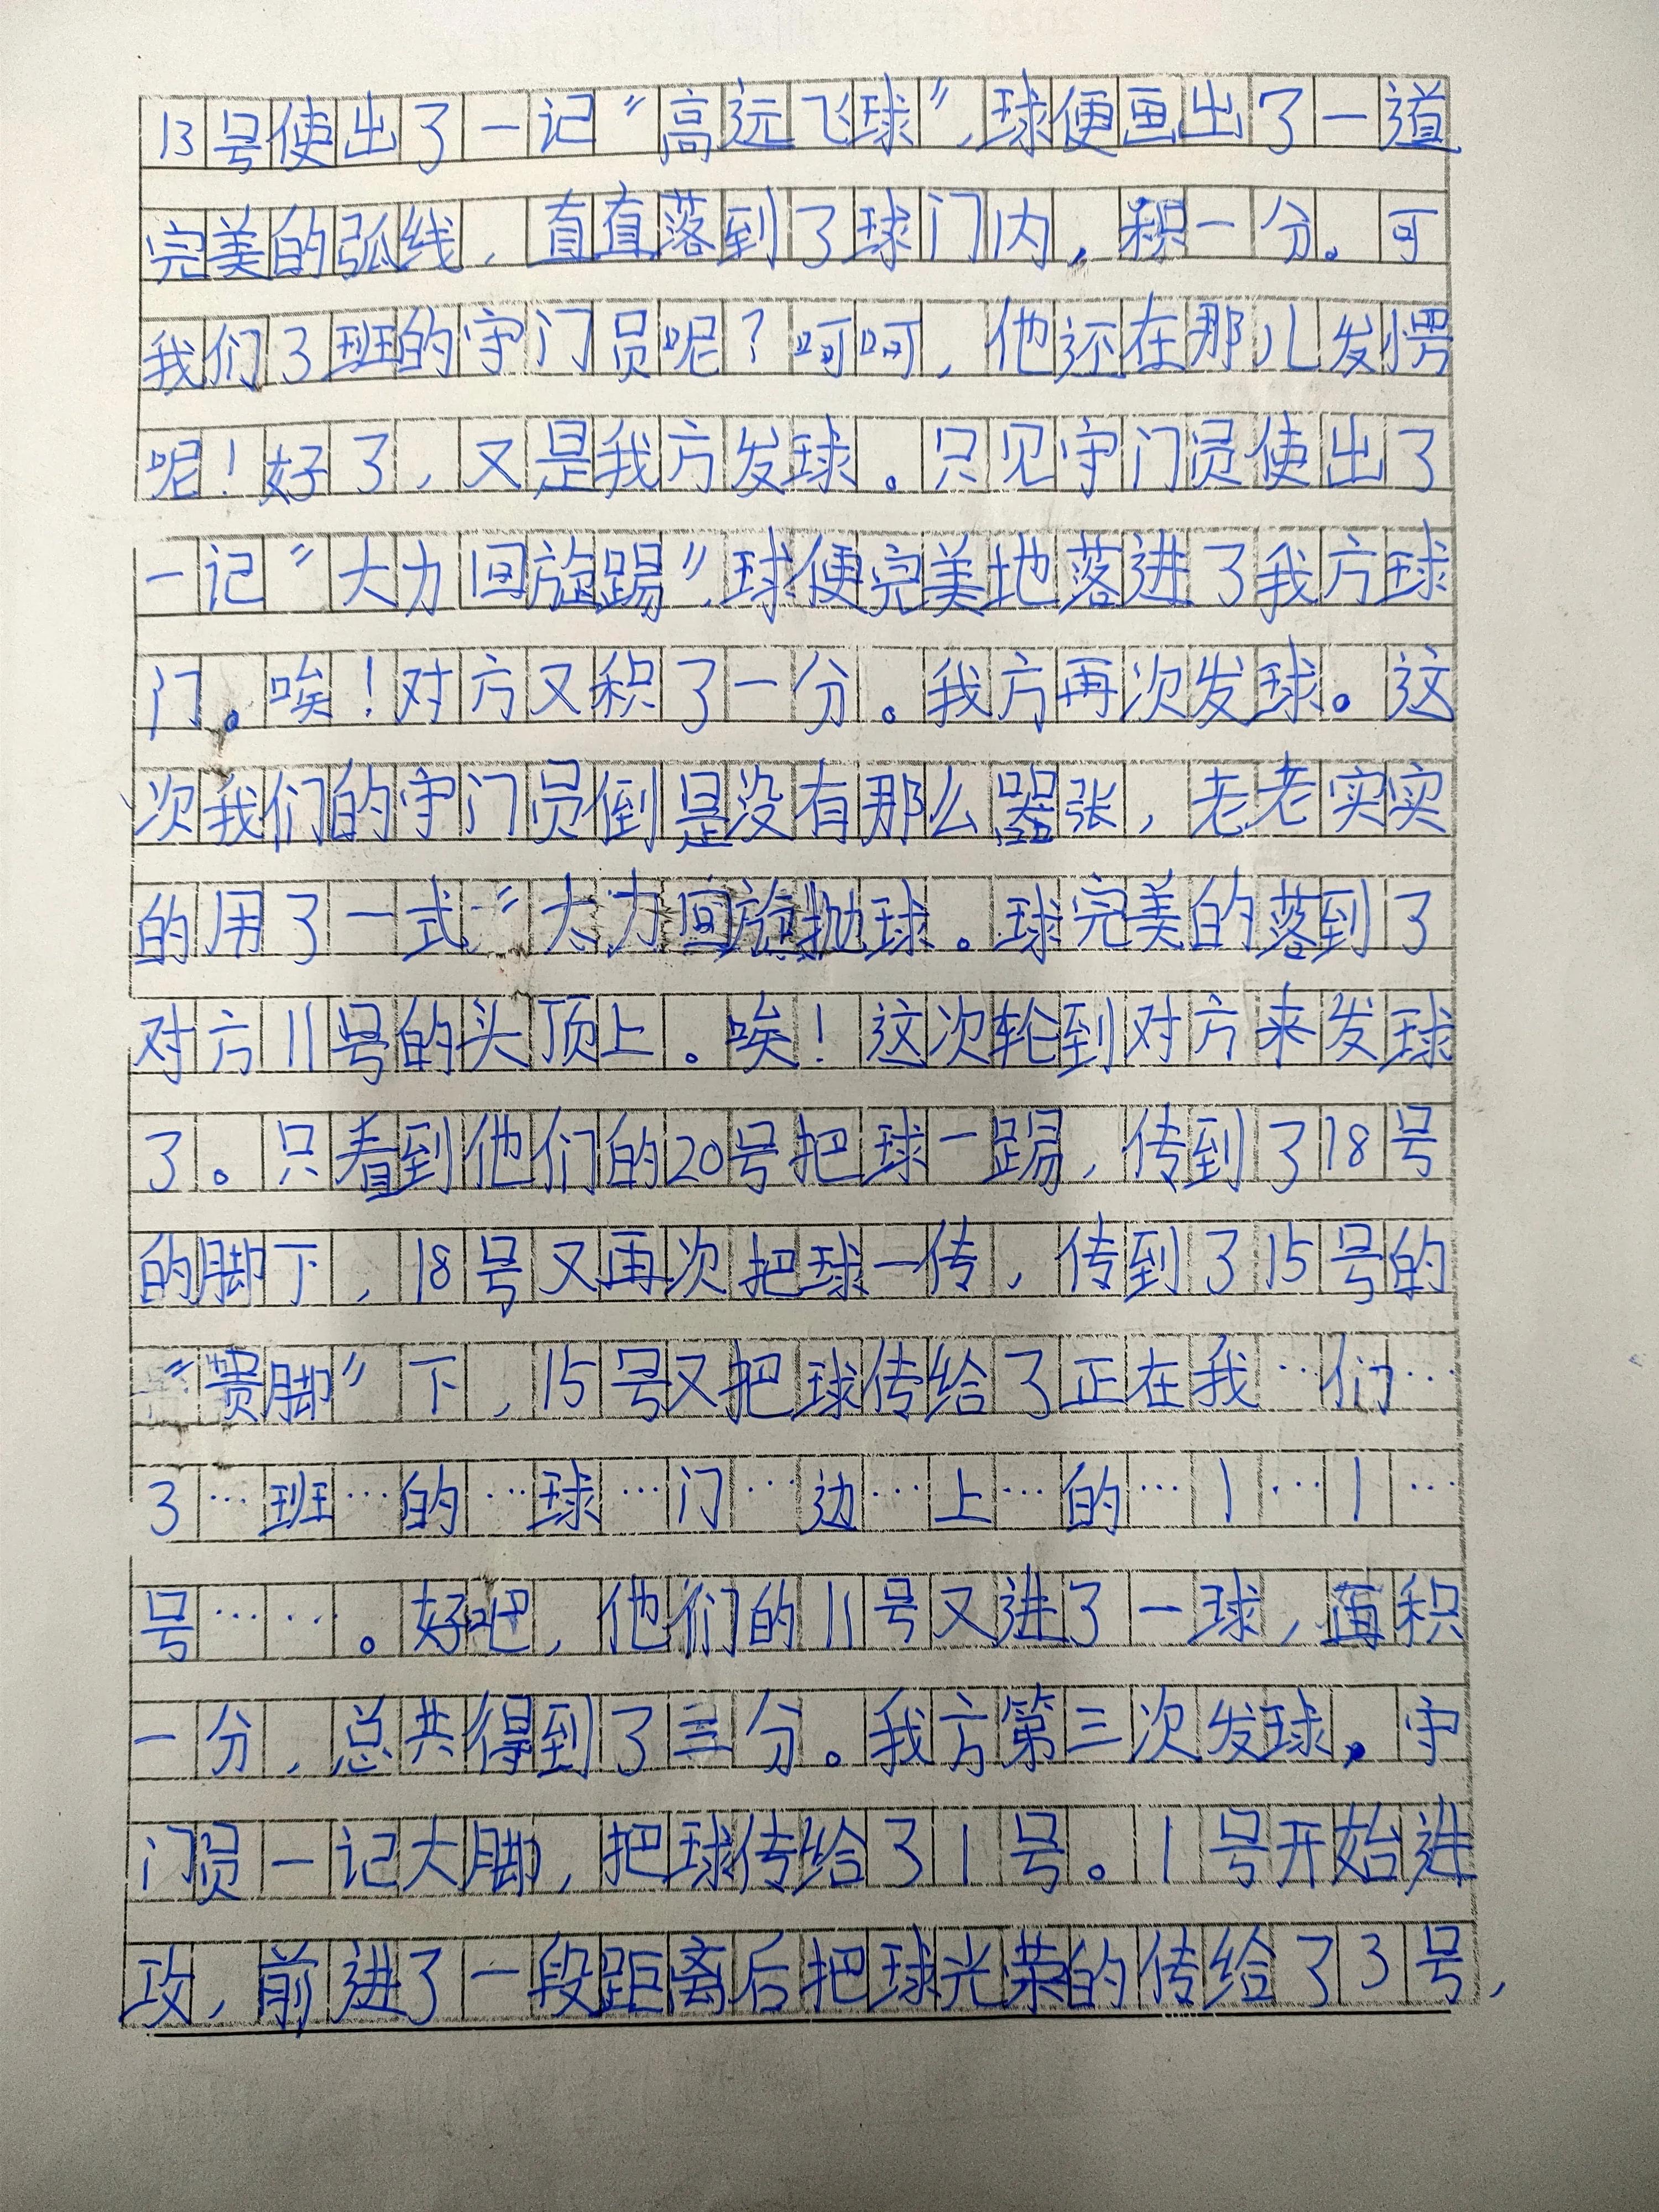 13号使出了一记“高远飞球”，球便画出了一道
完美的弧线，直直落到了球门内，积一分。可
我们3班的守门员呢？呵呵，他还在那儿发愣
呢！好了，又是我方发球。只见守门员使出了
一记“大力回旋踢”，球便完美地落进了我方球
门。唉！对方又积了一分。我方再次发球。这
次我们的守门员倒是没有那么嚣张，老老实实
的用了一式“大力回旋抛球。球完美的落到了
对方11号的头顶上。唉！这次轮到对方来发球
了。只看到他们的20号把球一踢，传到了18号
的脚下，18号又再次把球一传，传到了15号的
“贵脚”下，15号又把球传给了正在我…们…
3…班…的…球…门…边…上…的…1…1…
号……。好吧，他们的11号又进了一球，再积
一分，总共得到了三分。我方第三次发球，守
门员一记大脚，把球传给了1号。1号开始进
攻，前进了一段距离后把球光荣的传给了3号，